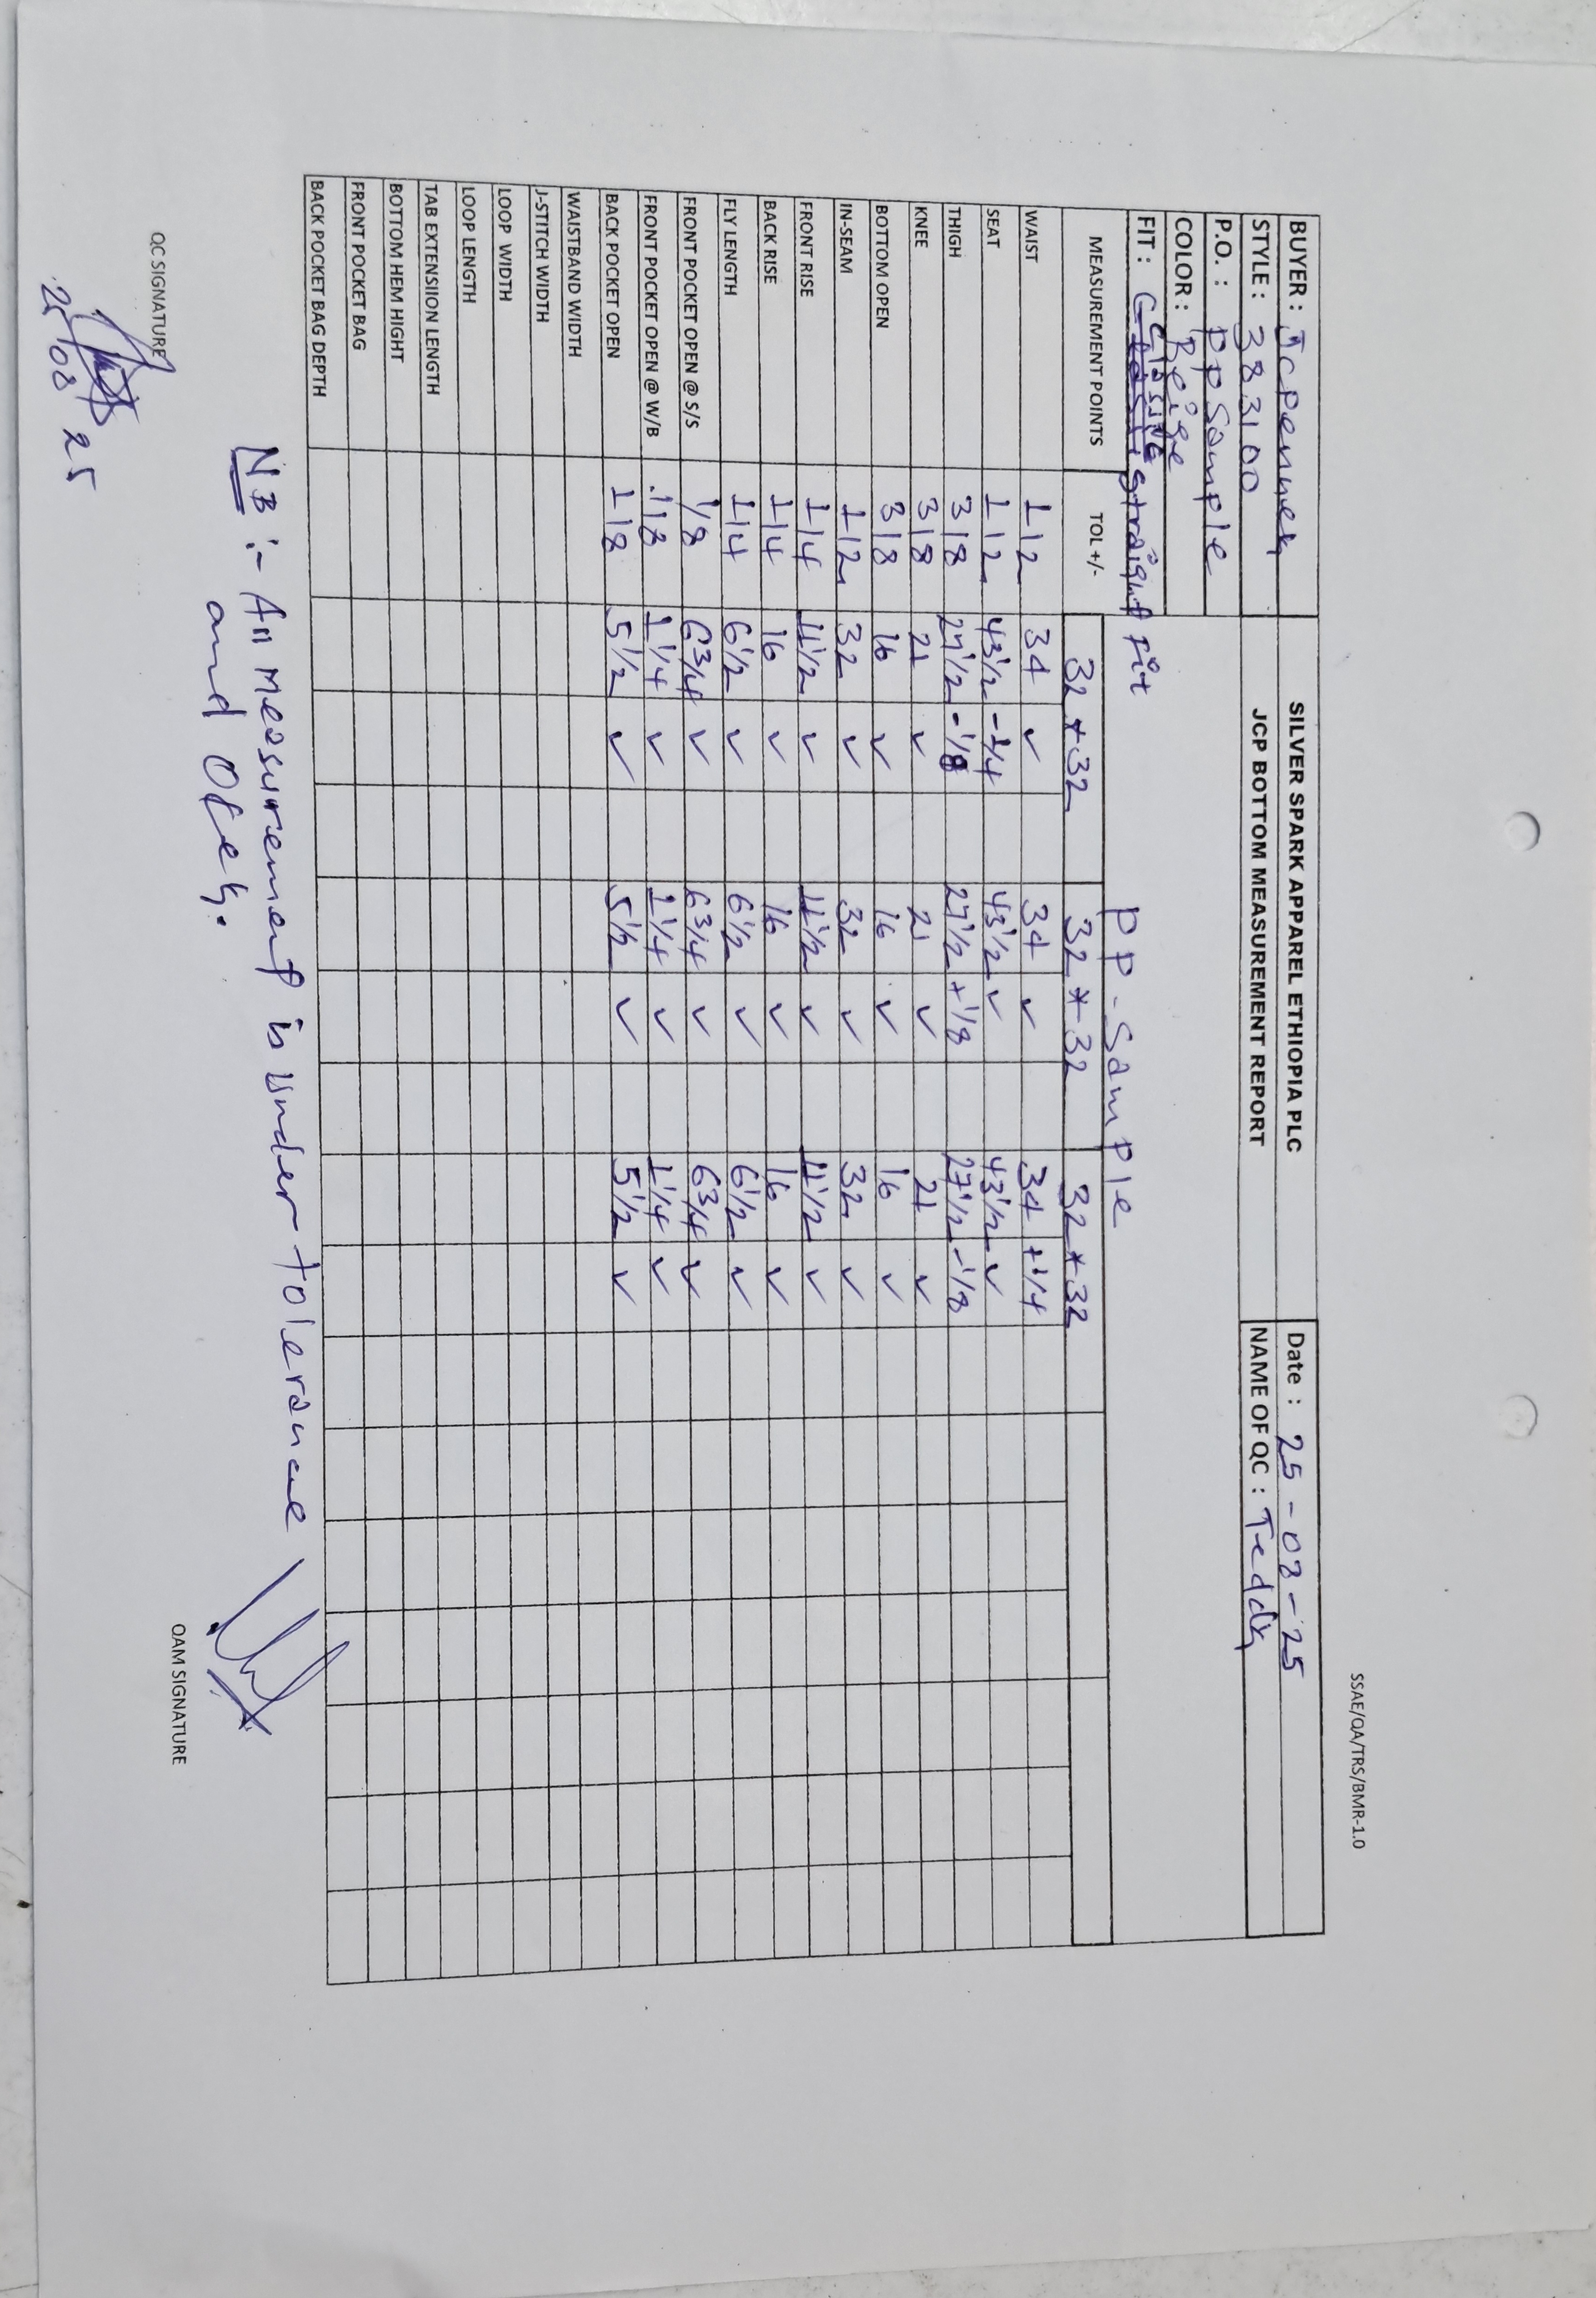 SSAE/QA/TRS/BMR-1.0
BUYER : Jcpenney SILVER SPARK APPAREL ETHIOPIA PLC Date : 25-08-25
STYLE : 383100 JCP BOTTOM MEASUREMENT REPORT NAME OF QC : Teddy
P.O. : pp Sample
COLOR : Beige
FIT : Straight Fit
PP-Sample
MEASUREMENT POINTS TOL +/- 32*32 32*32 32*32
WAIST 1/2 34 ✓ 34 ✓ 34 +1/4
SEAT 1/2 43 1/2 -1/4 43 1/2 ✓ 43 1/2 ✓
THIGH 3/8 27 1/2 -1/8 27 1/2 +1/8 27 1/2 -1/8
KNEE 3/8 21 ✓ 21 ✓ 21 ✓
BOTTOM OPEN 3/8 16 ✓ 16 ✓ 16 ✓
IN-SEAM 1/2 32 ✓ 32 ✓ 32 ✓
FRONT RISE 1/4 11 1/2 ✓ 11 1/2 ✓ 11 1/2 ✓
BACK RISE 1/4 16 ✓ 16 ✓ 16 ✓
FLY LENGTH 1/4 6 1/2 ✓ 6 1/2 ✓ 6 1/2 ✓
FRONT POCKET OPEN @ S/S 1/8 6 3/4 ✓ 6 3/4 ✓ 6 3/4 ✓
FRONT POCKET OPEN @ W/B 1/8 1 1/4 ✓ 1 1/4 ✓ 1 1/4 ✓
BACK POCKET OPEN 1/8 5 1/2 ✓ 5 1/2 ✓ 5 1/2 ✓
WAISTBAND WIDTH
J-STITCH WIDTH
LOOP WIDTH
LOOP LENGTH
TAB EXTENSIION LENGTH
BOTTOM HEM HIGHT
FRONT POCKET BAG
BACK POCKET BAG DEPTH
NB :- All Measurement is under tolerance
and Okey.
QAM SIGNATURE
QC SIGNATURE
25/08 25